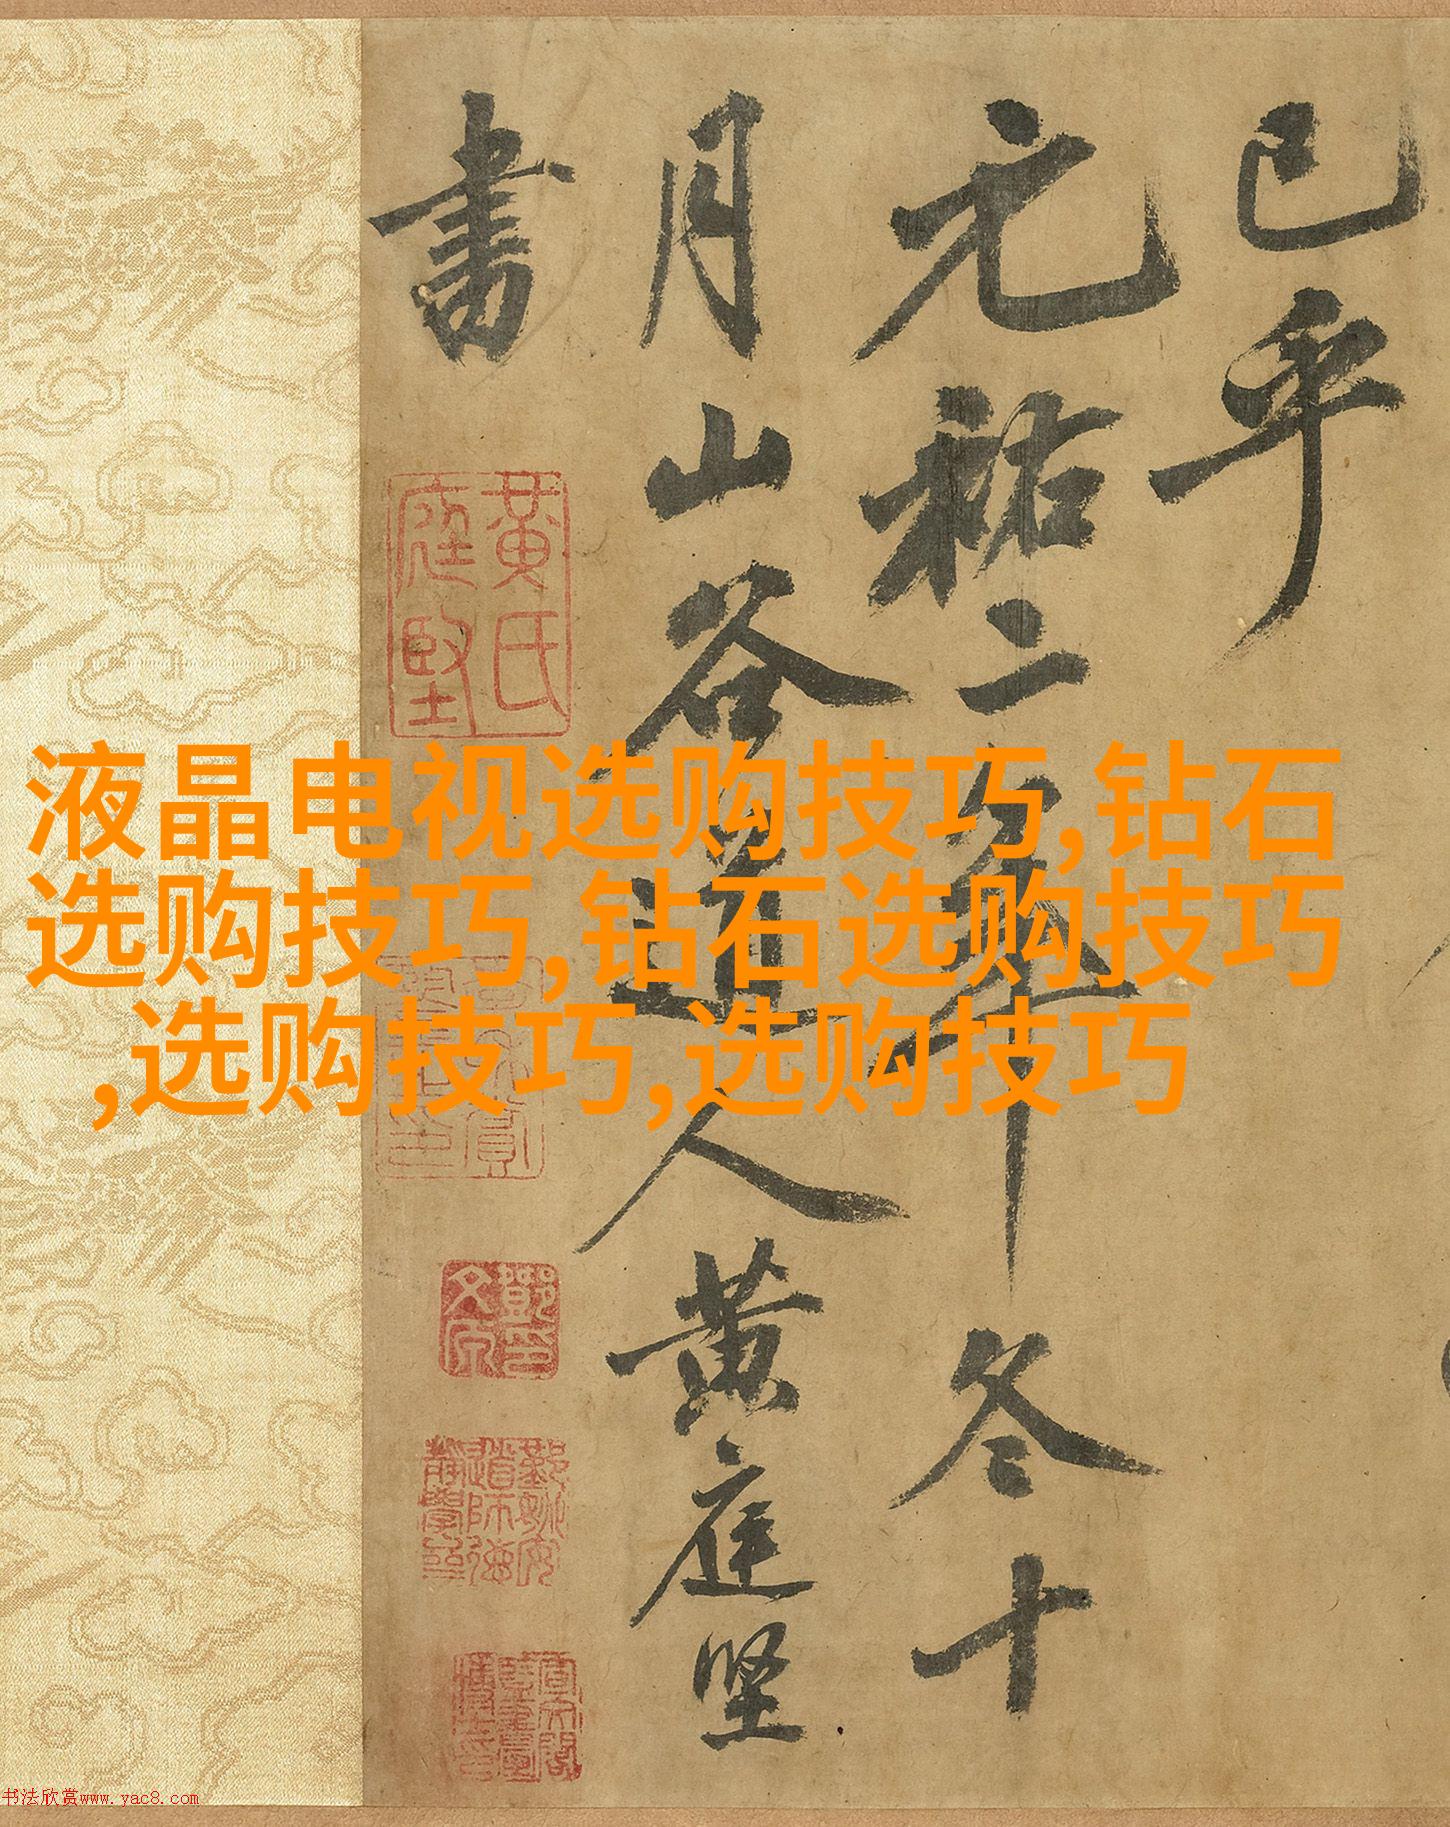 已乎
元祐二年冬十
月山谷道人黄庭坚
書
黄氏庭堅
液晶电视选购技巧,钻石
选购技巧,钻石选购技巧
,选购技巧,选购技巧
书法欣赏www.yac8.com